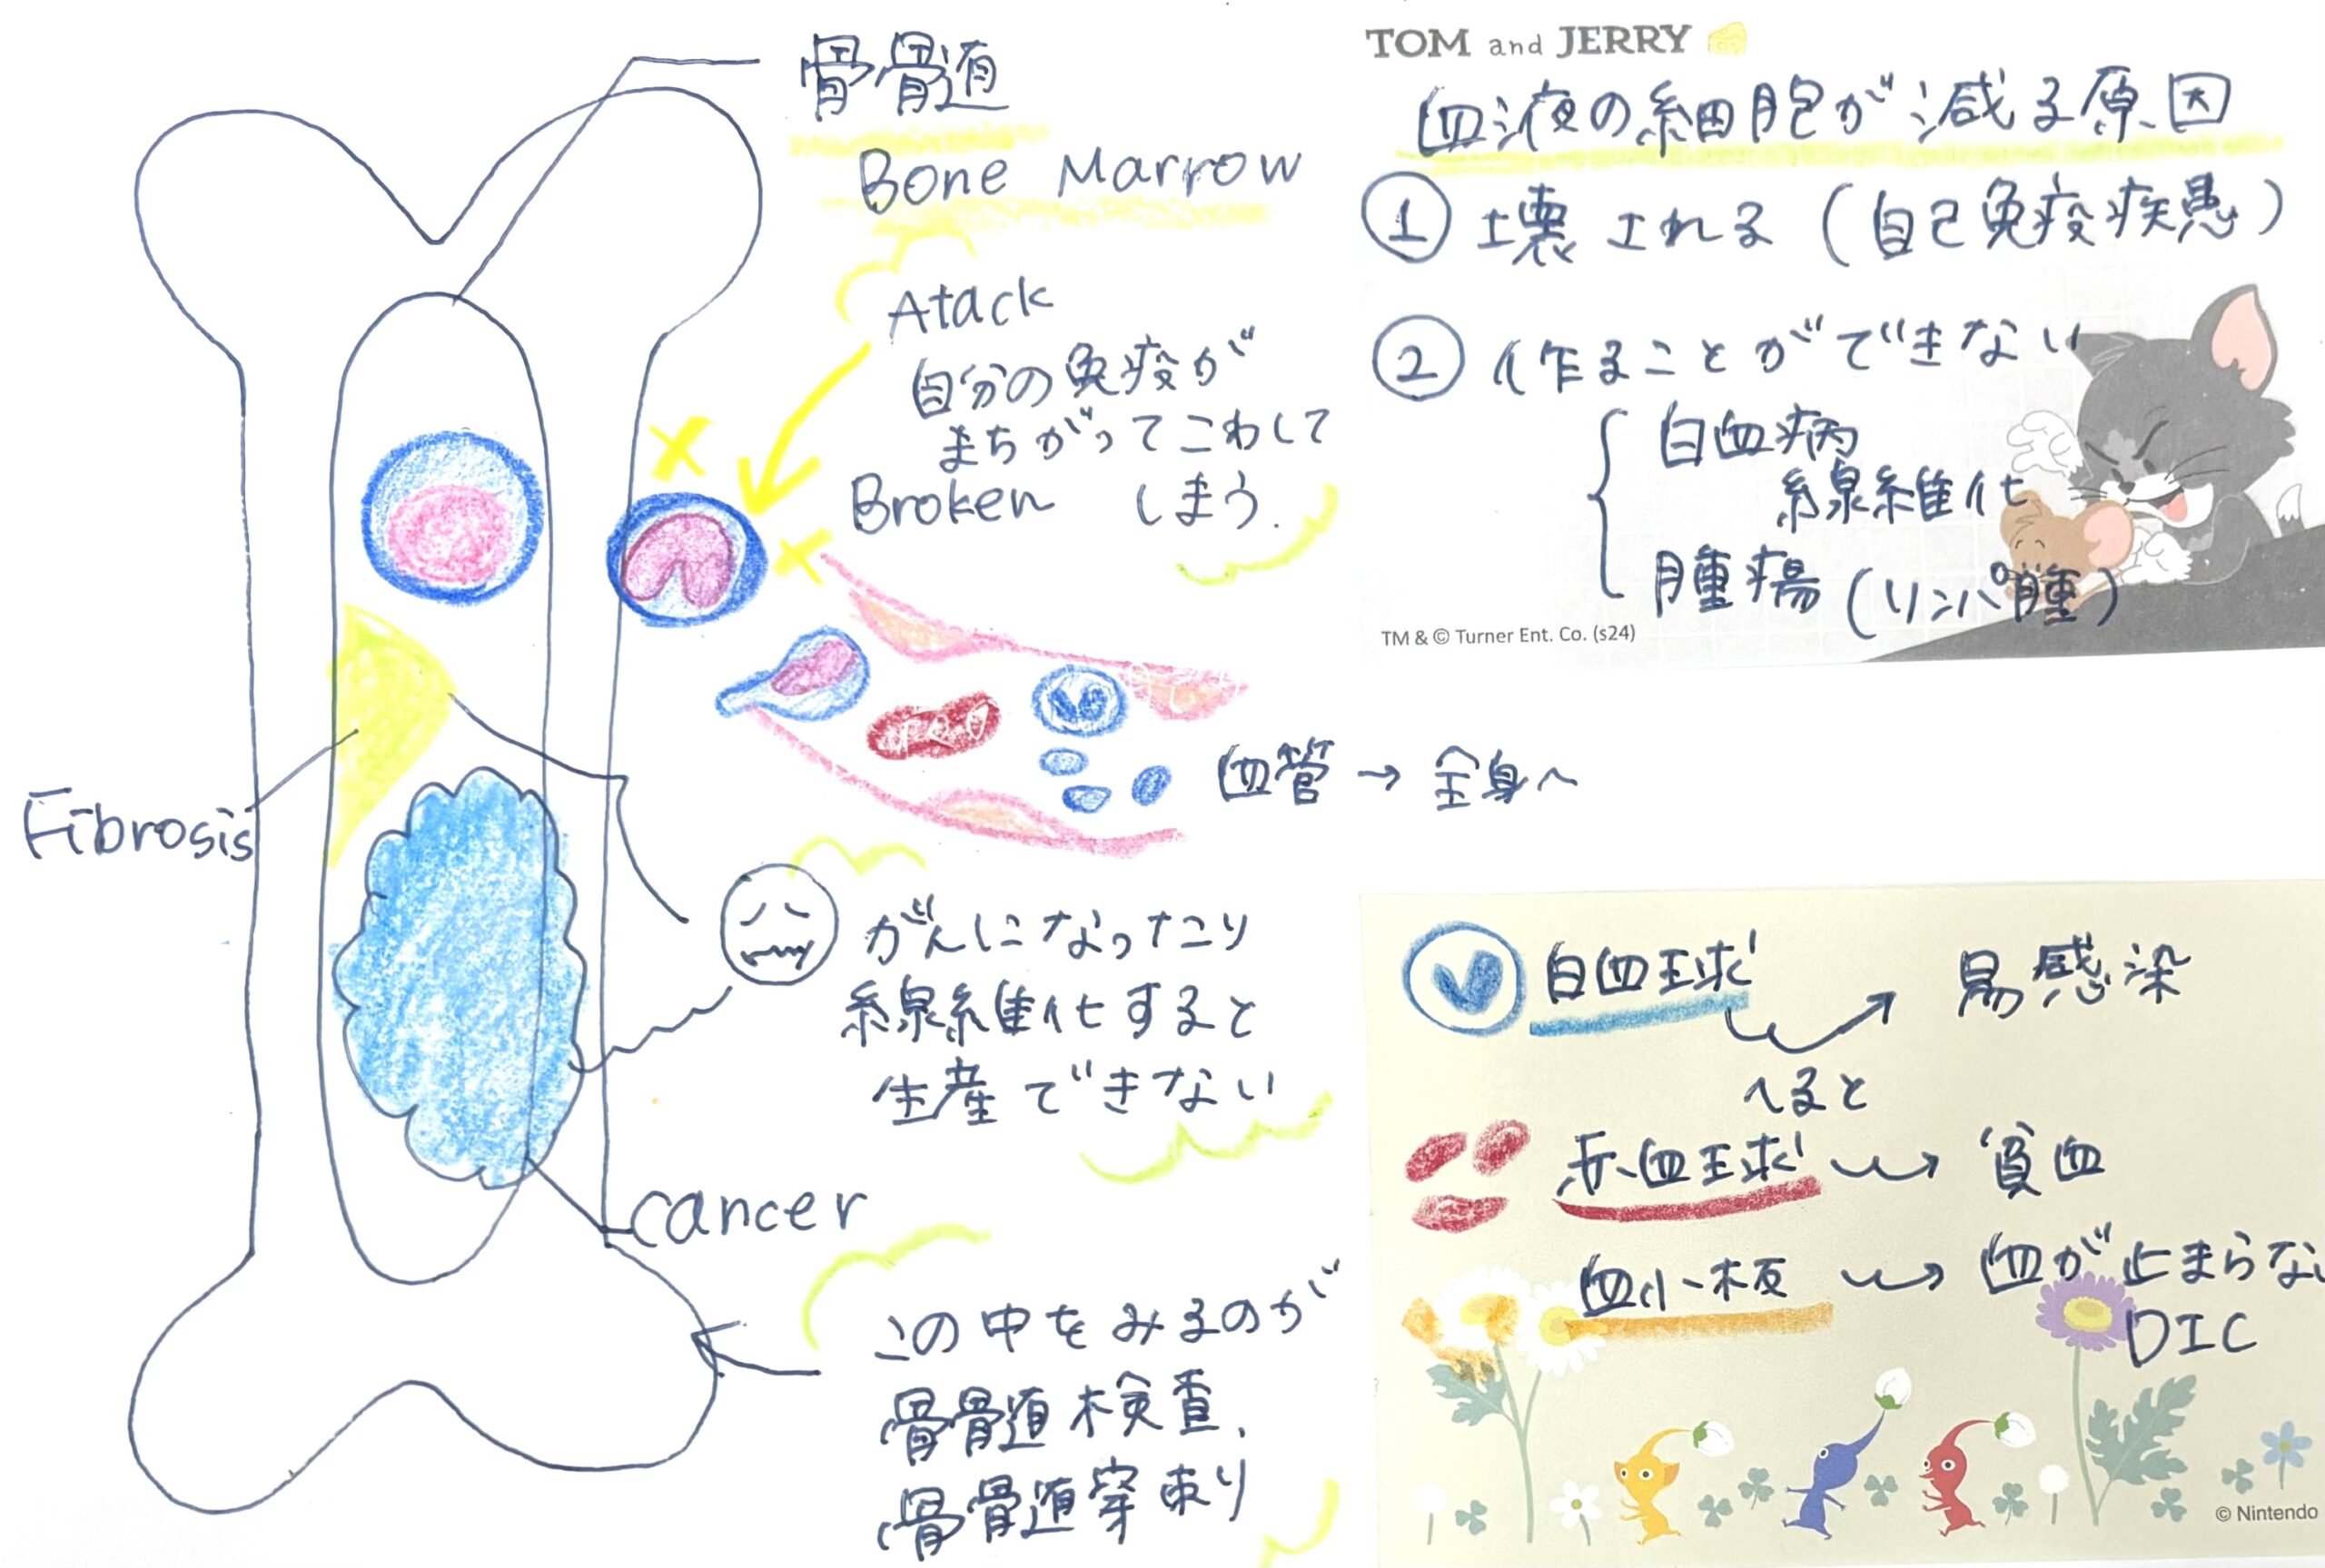 骨髄
Bone Marrow
Atack
自分の免疫が
まちがってこわして
Broken しまう.
血管 → 全身へ
Fibrosis
がんになったり
線維化すると
生産できない
cancer
この中をみるのが
骨髄検査、
骨髄穿刺
TOM and JERRY
血液の細胞が減る原因
① 壊される (自己免疫疾患)
② 作ることができない
白血病
線維化
腫瘍 (リンパ腫)
TM & © Turner Ent. Co. (s24)
白血球 易感染
へると
赤血球 → 貧血
血小板 → 血が止まらない
DIC
© Nintendo